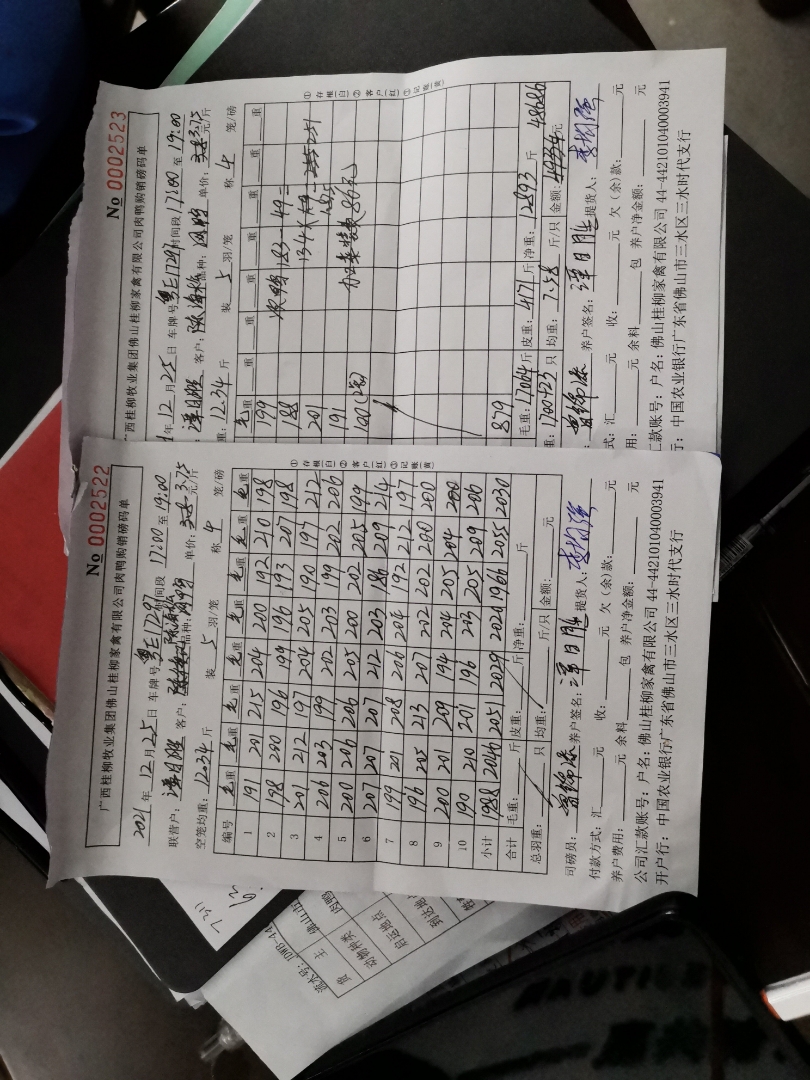 № 0002522
广西桂柳牧业集团佛山桂柳家禽有限公司肉鸭购销磅码单
2021年12月25日 车牌号粤E1797 时间段 17:00 至 19:00
联营户: 谭日胜 客户: 陈海松 品种: 单价: 3.75 元/斤
空笼均重: 12.34 斤 装 5 羽/笼 称 4 笼/磅
编号 毛重 毛重 毛重 毛重 毛重 毛重 毛重 毛重
1 191 201 215 204 200 192 210 198
2 198 200 196 199 196 193 207 198
3 201 212 197 204 205 190 197 212
4 206 203 199 202 203 199 202 206
5 200 206 206 205 200 202 205 199
6 207 207 207 212 203 186 209 214
7 199 201 208 206 204 192 212 197
8 196 205 213 207 202 202 200 200
9 200 201 209 194 204 205 204 200
10 190 210 201 196 203 205 209 206
小计 1988 2046 2051 2029 2020 1966 2055 2030
合计 毛重: 斤 皮重: 斤 净重: 斤
总羽重: 只 均重: 斤/只 金额: 元
①存根(白)②客户(红)③记账(黄)
司磅员: 养户签名: 谭日胜 提货人:
付款方式: 汇 元 收: 元 欠(余)款: 元
养户费用: 元 余料 包 养户净金额: 元
公司汇款账号: 户名: 佛山桂柳家禽有限公司 44-442101040003941
开户行: 中国农业银行广东省佛山市三水区三水时代支行
№ 0002523
广西桂柳牧业集团佛山桂柳家禽有限公司肉鸭购销磅码单
年12月25日 车牌号粤E1797 时间段 17:00 至 19:00
谭日胜 客户: 陈海松 品种: 单价: 3.75 元/斤
重: 12.34 斤 装 5 羽/笼 称 4 笼/磅
毛重 重 重 重 重 重 重
199 次鸭 183-49=
188 134
201
191
100(2笼)
879
毛重: 17064 斤 皮重: 4171 斤 净重: 12893 斤
重: 1700+23 只 均重: 7.58 斤/只 金额: 48686 元
①存根(白)②客户(红)③记账(黄)
养户签名: 谭日胜 提货人:
式: 汇 元 收: 元 欠(余)款: 元
用: 元 余料 包 养户净金额: 元
汇款账号: 户名: 佛山桂柳家禽有限公司 44-442101040003941
行: 中国农业银行广东省佛山市三水区三水时代支行
动物种类
启运地点
到达地点